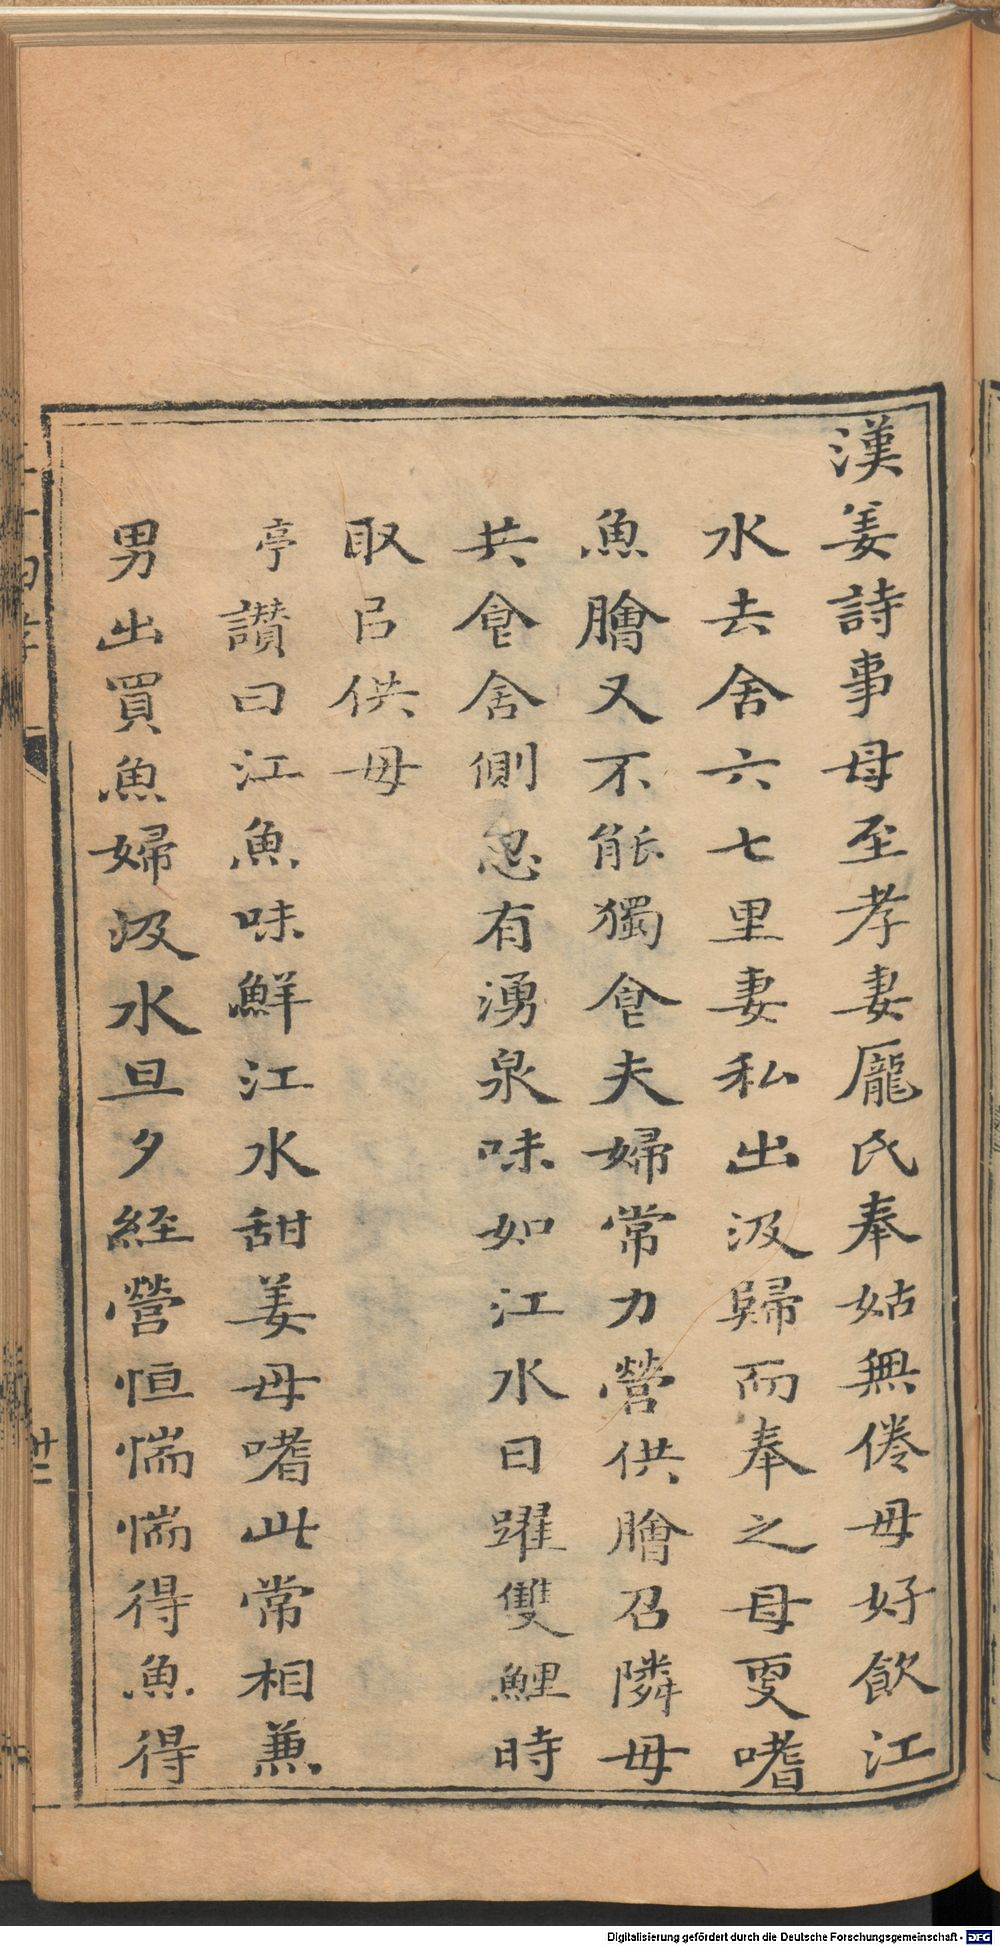 漢姜詩事母至孝妻龎氏奉姑無倦母好飲江
水去舍六七里妻私出汲歸而奉之母更嗜
魚膾又不能獨食夫婦常力營供膾召隣母
共食舍側忽有湧泉味如江水日躍雙鯉時
取㠯供母
亭讃曰江魚味鮮江水甜姜母嗜此常相兼
男出買魚婦汲水旦夕経營恒惴惴得魚得
二十四孝
廿二
Digitalisierung gefördert durch die Deutsche Forschungsgemeinschaft - DFG